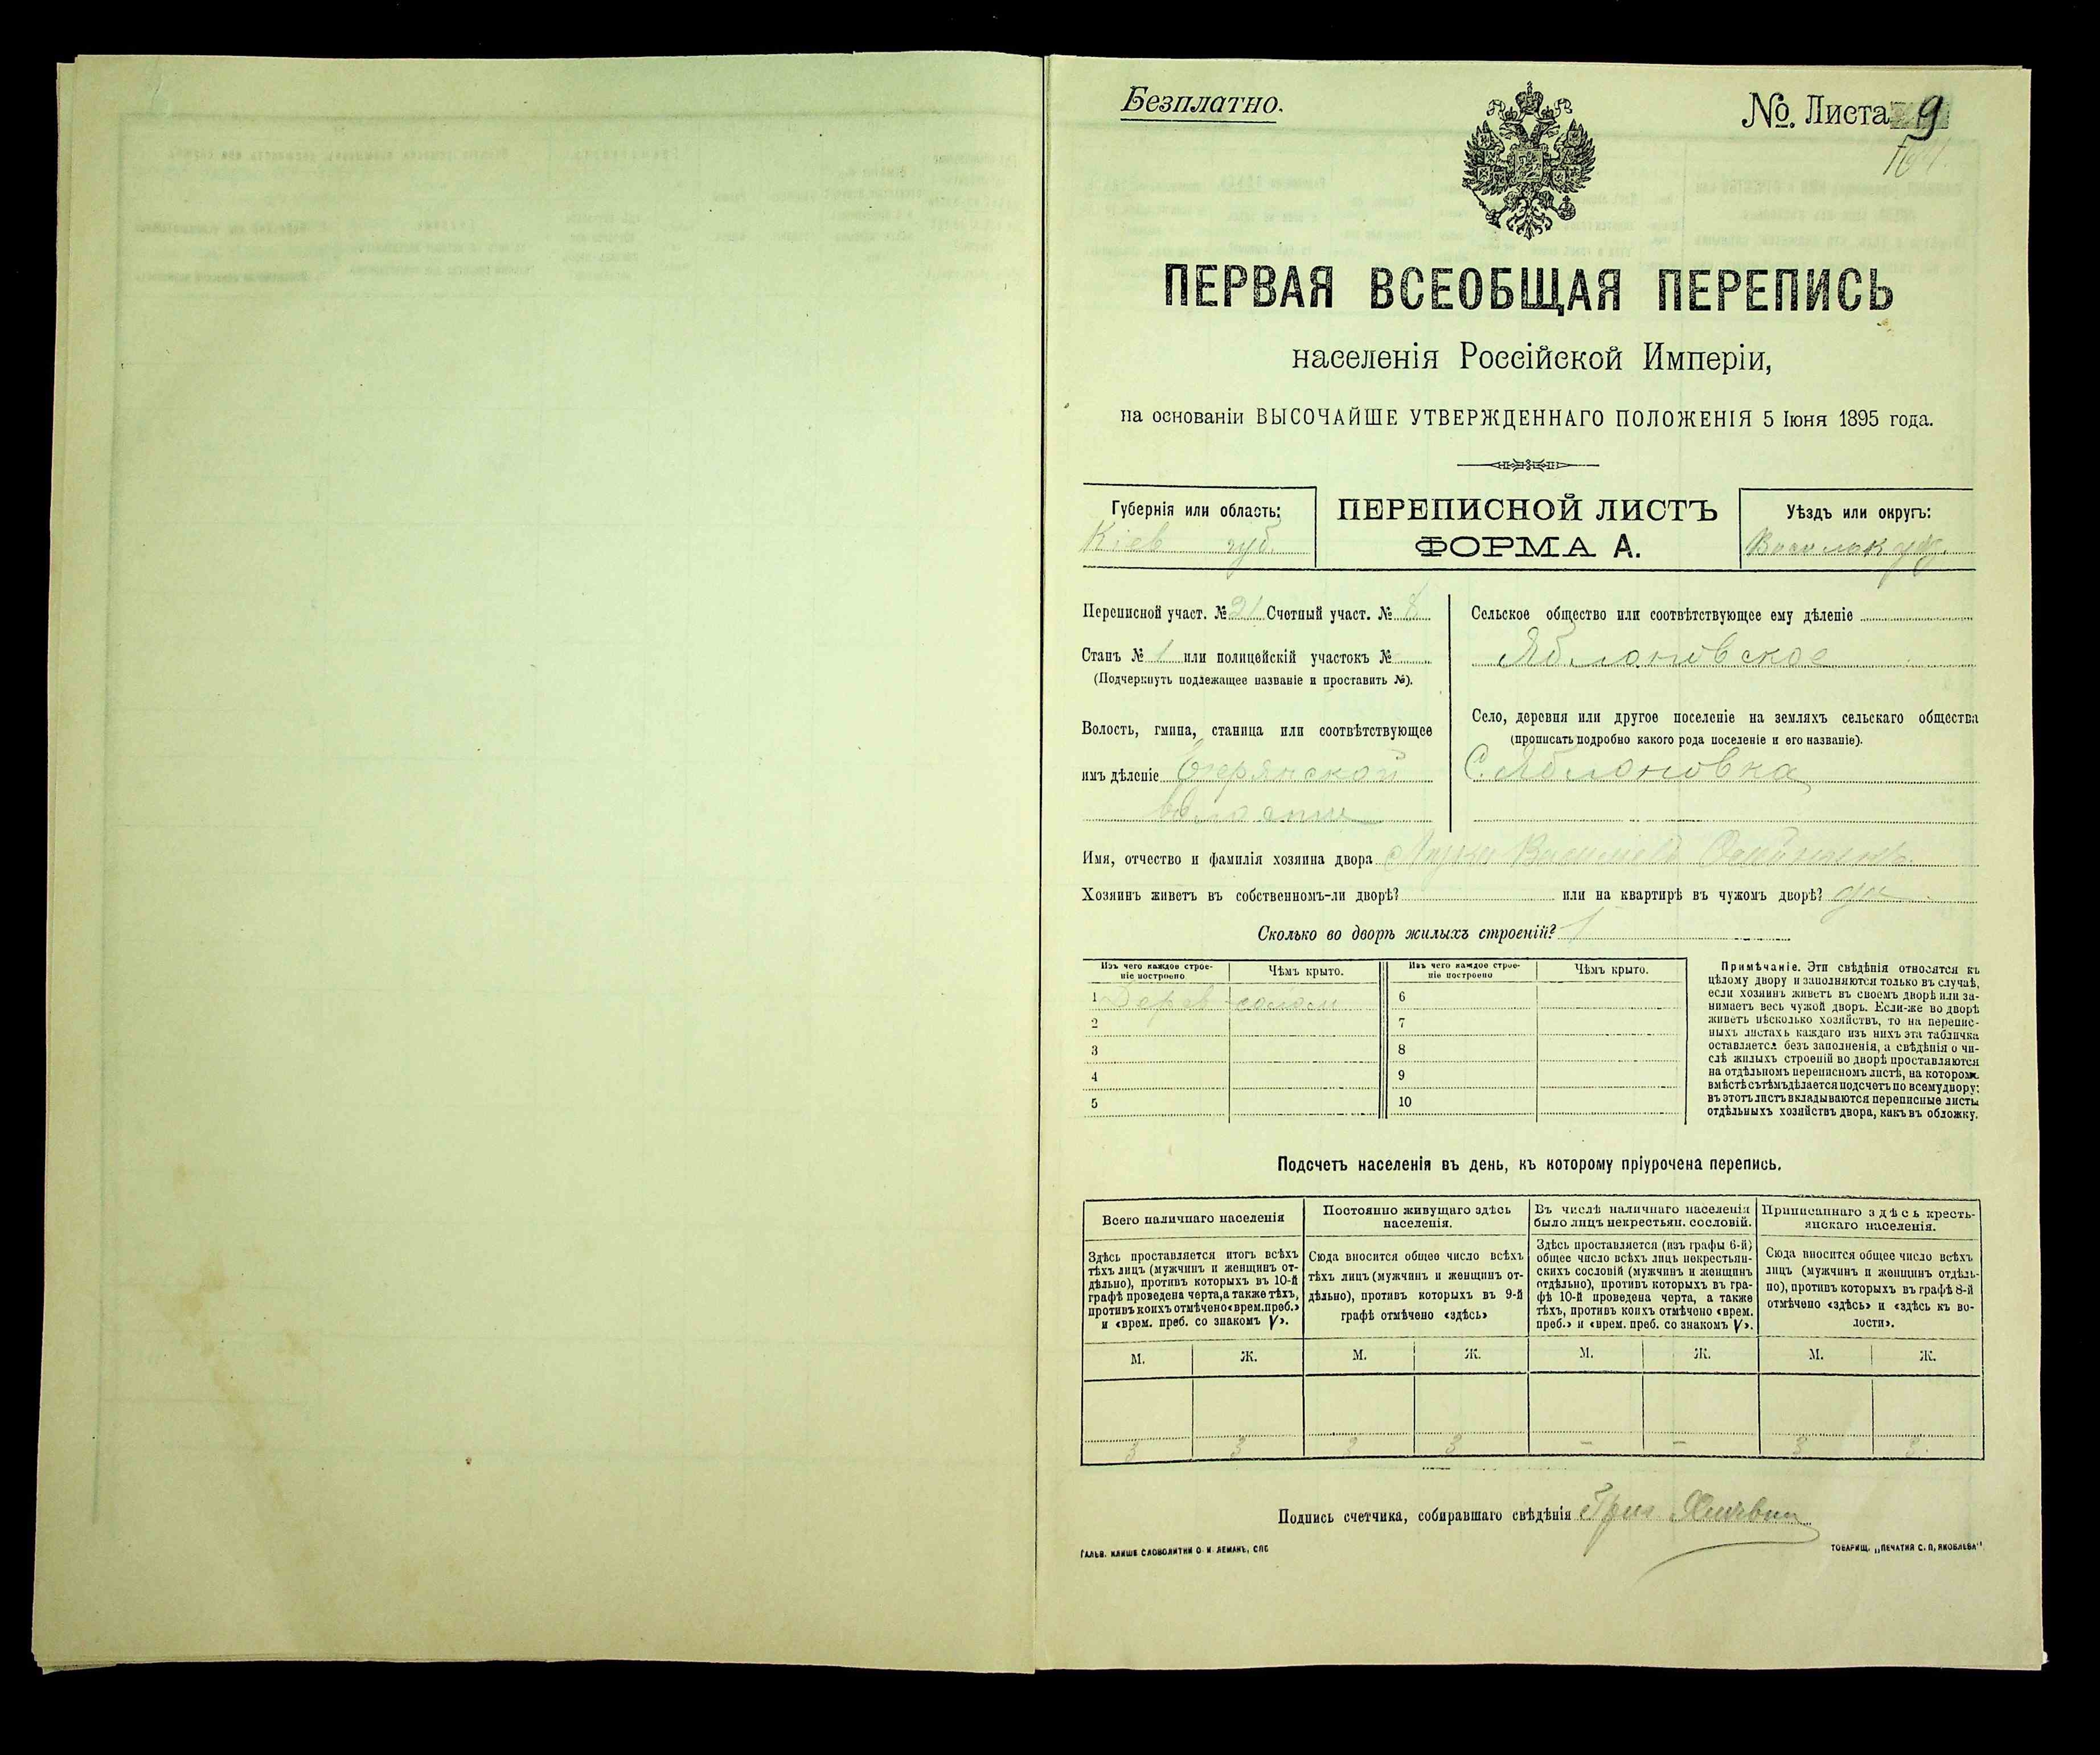 Безплатно.
№. Листа 9
ПЕРВАЯ ВСЕОБЩАЯ ПЕРЕПИСЬ
населенія Россійской Имперіи,
на основаніи ВЫСОЧАЙШЕ УТВЕРЖДЕННАГО ПОЛОЖЕНІЯ 5 Іюня 1895 года.
Губернія или область:
Кіев губ.
ПЕРЕПИСНОЙ ЛИСТЪ
ФОРМА А.
Уѣздъ или округъ:
Переписной участ. № 21 Счетный участ. № 8
Станъ № 1 или полицейскій участокъ №
(Подчеркнуть подлежащее названіе и проставить №).
Волость, гмина, станица или соотвѣтствующее
имъ дѣленіе
Сельское общество или соотвѣтствующее ему дѣленіе
Яблоновское
Село, деревня или другое поселеніе на земляхъ сельскаго общества
(прописать подробно какого рода поселеніе и его названіе).
С. Яблоновка
Имя, отчество и фамилія хозяина двора
Хозяинъ живетъ въ собственномъ-ли дворѣ? или на квартирѣ въ чужомъ дворѣ? да
Сколько во дворѣ жилыхъ строеній? 1
Изъ чего каждое строе-
ніе построено
Чѣмъ крыто.
Изъ чего каждое строе-
ніе построено
Чѣмъ крыто.
1 Дерев солом
2
3
4
5
6
7
8
9
10
Примѣчаніе. Эти свѣдѣнія относятся къ
цѣлому двору и заполняются только въ случаѣ,
если хозяинъ живетъ въ своемъ дворѣ или за-
нимаетъ весь чужой дворъ. Если-же во дворѣ
живетъ нѣсколько хозяйствъ, то на перепис-
ныхъ листахъ каждаго изъ нихъ эта табличка
оставляется безъ заполненія, а свѣдѣнія о чи-
слѣ жилыхъ строеній во дворѣ проставляются
на отдѣльномъ переписномъ листѣ, на которомъ
вмѣстѣ съ тѣмъ дѣлается подсчетъ по всему двору;
въ этотъ листъ вкладываются переписные листы
отдѣльныхъ хозяйствъ двора, какъ въ обложку.
Подсчетъ населенія въ день, къ которому пріурочена перепись.
Всего наличнаго населенія
Здѣсь проставляется итогъ всѣхъ
тѣхъ лицъ (мужчинъ и женщинъ от-
дѣльно), противъ которыхъ въ 10-й
графѣ проведена черта, а также тѣхъ,
противъ коихъ отмѣчено «врем. преб.»
и «врем. преб. со знакомъ V».
Постоянно живущаго здѣсь
населенія.
Сюда вносится общее число всѣхъ
тѣхъ лицъ (мужчинъ и женщинъ от-
дѣльно), противъ которыхъ въ 9-й
графѣ отмѣчено «здѣсь»
Въ числѣ наличнаго населенія
было лицъ некрестьян. сословій.
Здѣсь проставляется (изъ графы 6-й)
общее число всѣхъ лицъ некрестьян-
скихъ сословій (мужчинъ и женщинъ
отдѣльно), противъ которыхъ въ гра-
фѣ 10-й проведена черта, а также
тѣхъ, противъ коихъ отмѣчено «врем.
преб.» и «врем. преб. со знакомъ V».
Приписаннаго здѣсь кресть-
янскаго населенія.
Сюда вносится общее число всѣхъ
лицъ (мужчинъ и женщинъ отдѣль-
но), противъ которыхъ въ графѣ 8-й
отмѣчено «здѣсь» и «здѣсь къ во-
лости».
М. Ж. М. Ж. М. Ж. М. Ж.
3 3 3 3 – – 3 3
Подпись счетчика, собиравшаго свѣдѣнія
ГАЛЬВ. КЛИШЕ СЛОВОЛИТНИ О. И. ЛЕМАНЪ, СПБ
ТОВАРИЩ. „ПЕЧАТНЯ С. П. ЯКОВЛЕВА"